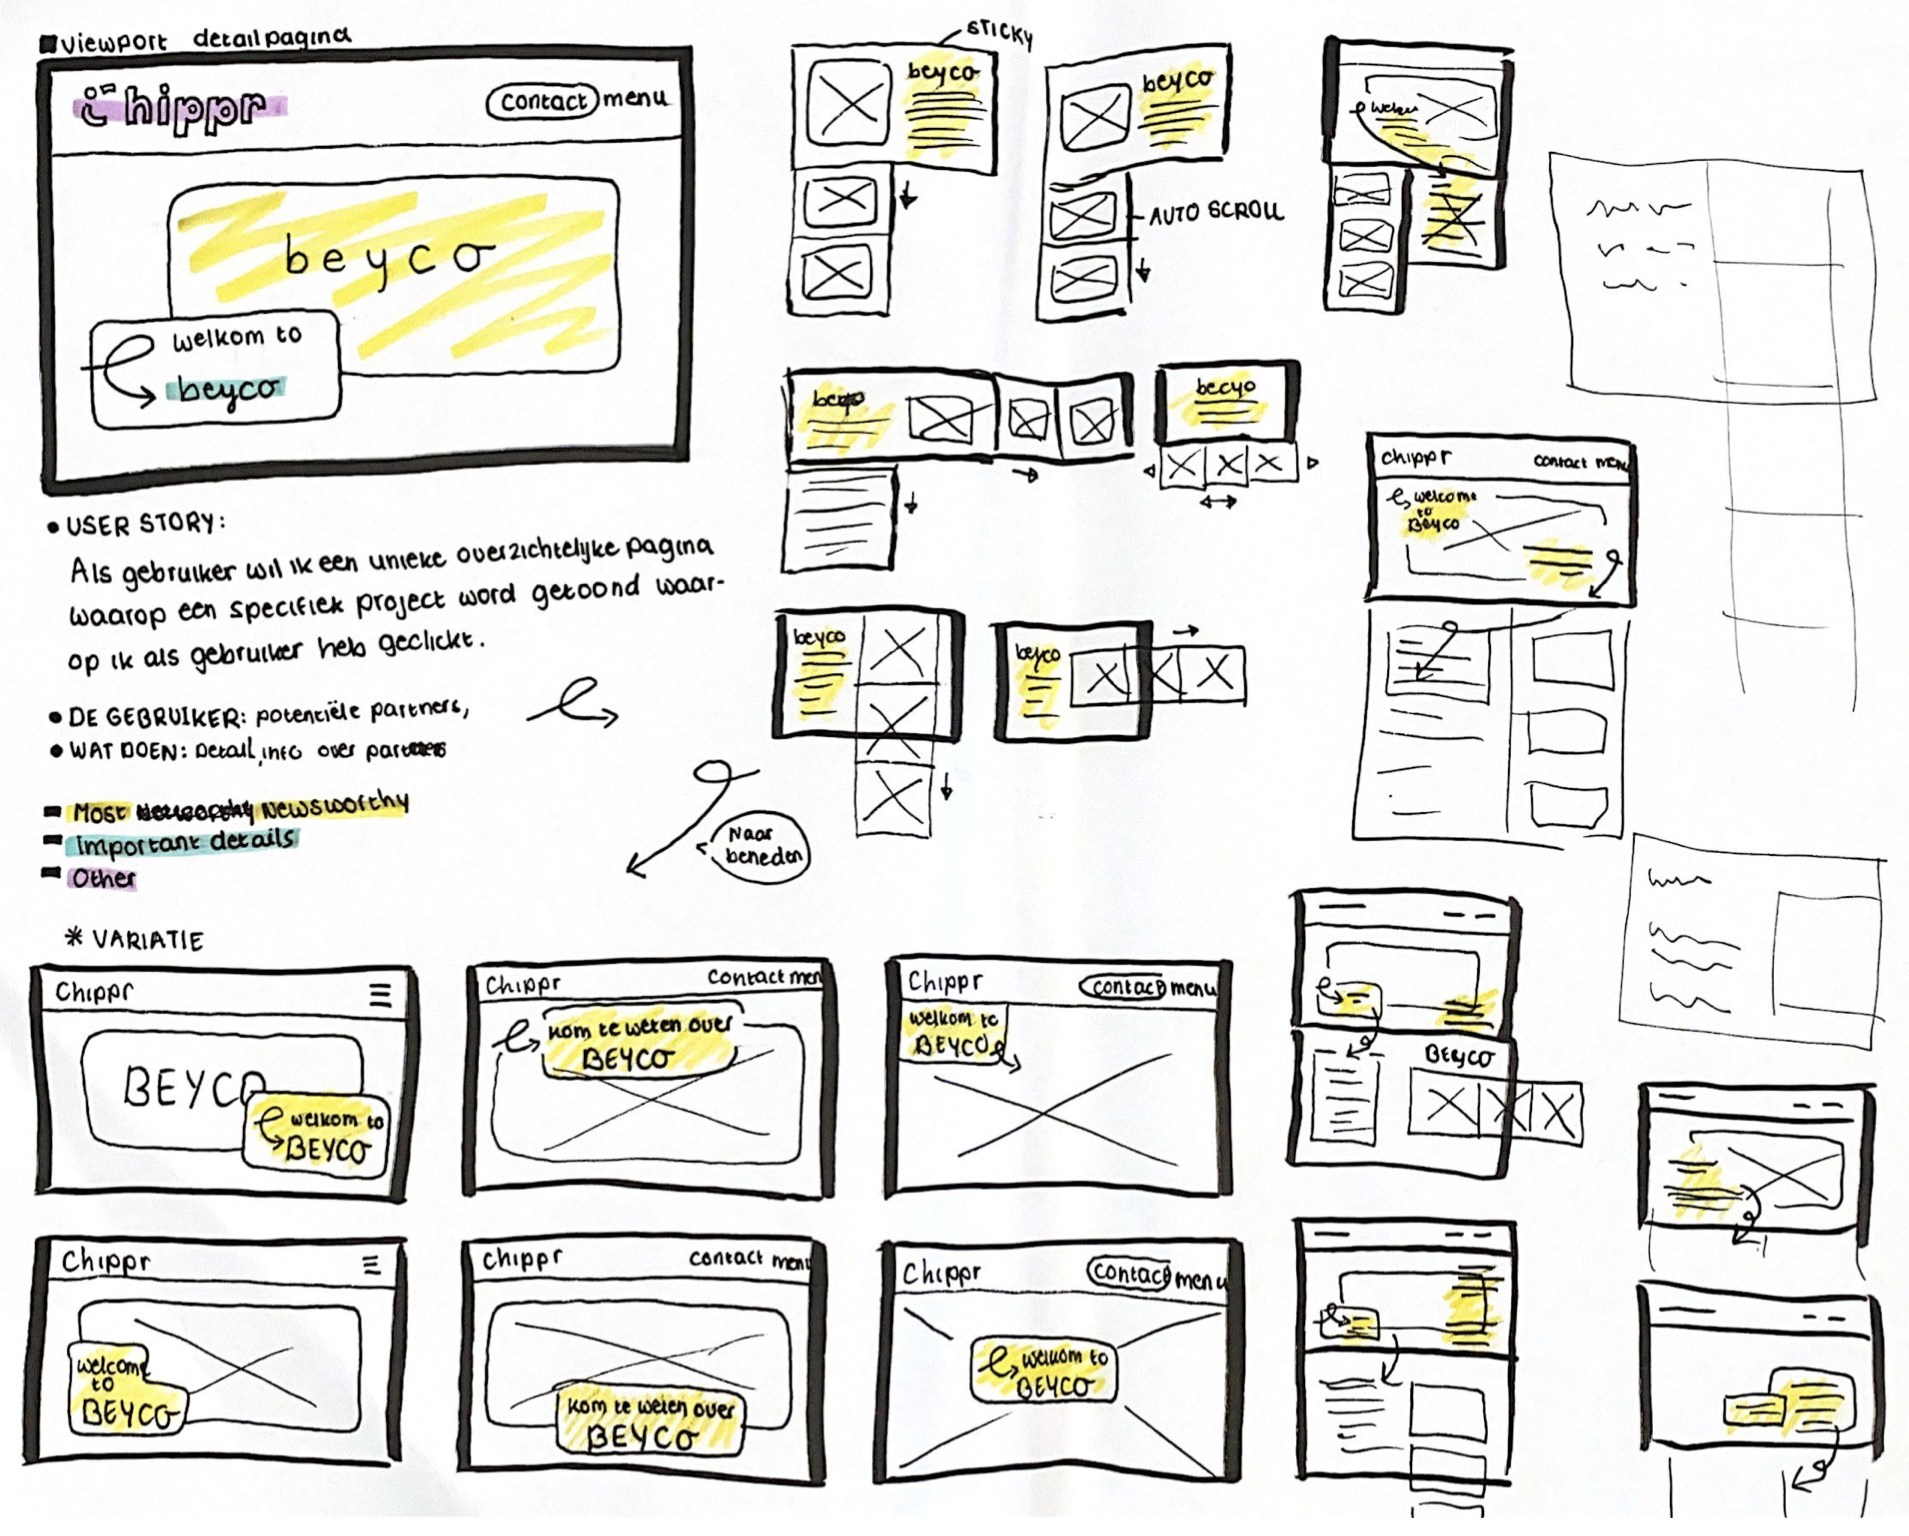 viewport detailpagina
chippr
contact menu
beyco
welkom to
beyco
USER STORY:
Als gebruiker wil ik een unieke overzichtelijke pagina
waarop een specifiek project word getoond waar-
op ik als gebruiker heb geclickt.
DE GEBRUIKER: potentiële partners,
WAT DOEN: Detail, info over partners
Most Newsworthy
Important details
Other
Naar
beneden
STICKY
beyco
beyco
AUTO SCROLL
welkom
beyco
becyo
beyco
beyco
Chippr
contact menu
welcome
to
Beyco
* VARIATIE
Chippr
BEYCO
welkom to
BEYCO
Chippr
Contact men
Kom te weten over
BEYCO
Chippr
contact menu
welkom to
BEYCO
BEYCO
Chippr
welcome
to
BEYCO
Chippr
contact menu
Kom te weten over
BEYCO
Chippr
contact menu
welkom to
BEYCO